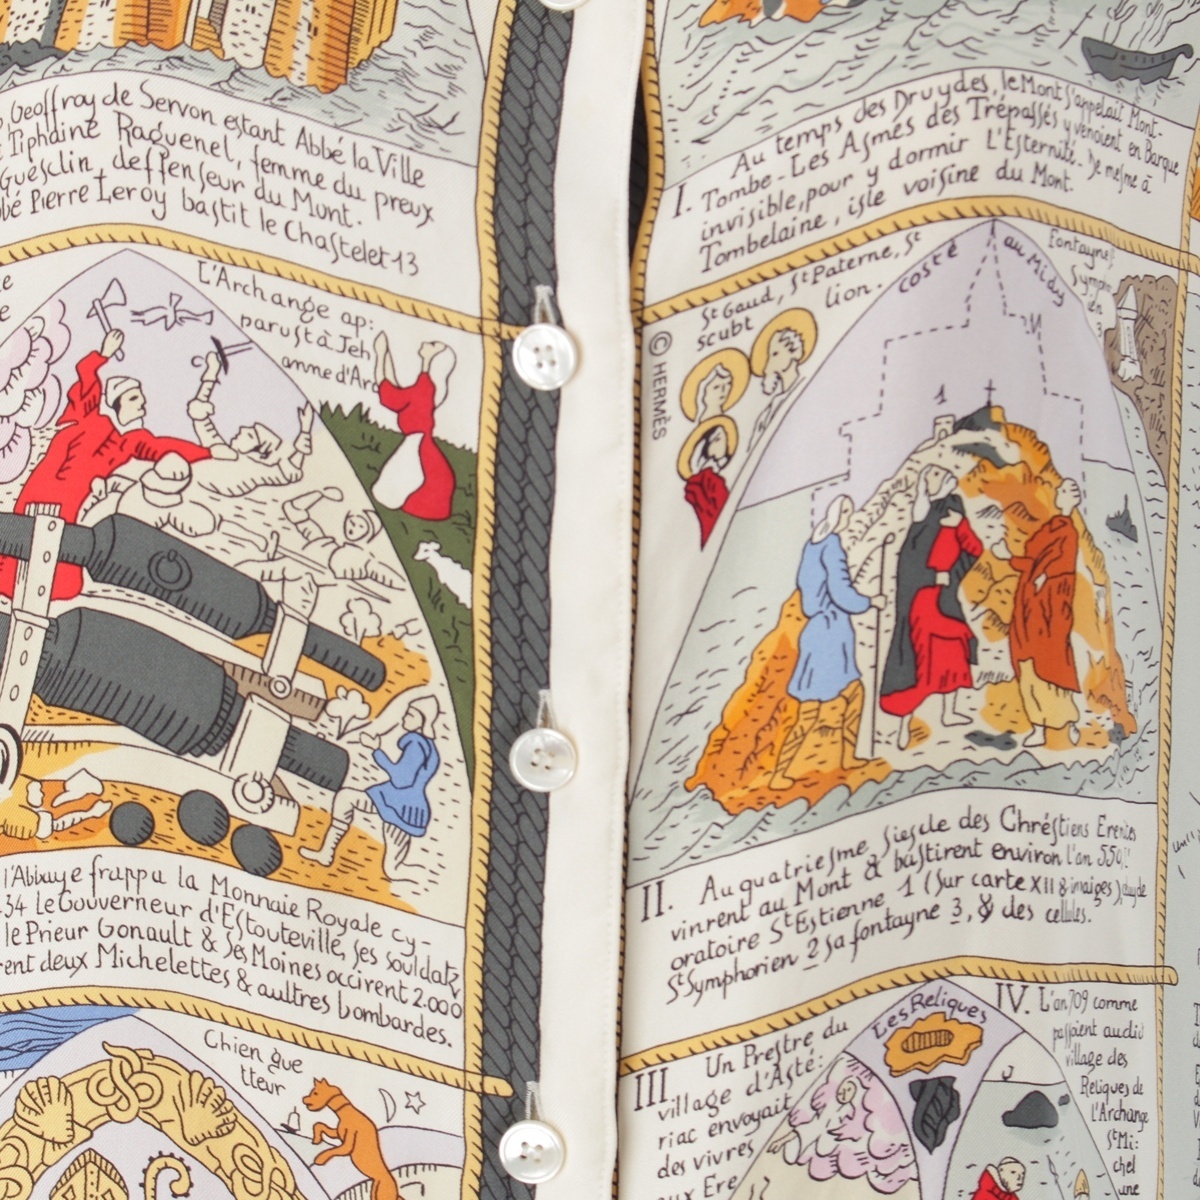 Geoffray de Servon estant Abbé la Ville
Tiphaine Raguenel, femme du preux
Guesclin, deffenseur du Munt.
bé Pierre Leroy bastit le Chastelet 13
L'Archange ap:
parust à Jeh
anne d'Arc
l'Abbaye frappa la Monnaie Royale cy-
34 le Gouverneur d'Estouteville, ses souldatz
le Prieur Gonault & ses Moines occirent 2.000
rent deux Michelettes & aultres bombardes.
Chien gue
tteur
Au temps des Druydes, le Mont s'appelait Mont-
I. Tombe - Les Asmés des Trépassés y venoient en Barque
invisible, pour y dormir L'Esternité. De mesme à
Tombelaine, isle voisine du Mont.
St Gaud, St Paterne, St
scubt lion.
costé au Midy
Fontayne
Symphο
en
3
© HERMÈS
1
II. Au quatriesme siescle des Chréstiens Eremites
vinrent au Mont & bastirent environ l'an 550
oratoire St Estienne 1 (sur carte XII & imaiges)
St Symphorien 2 sa fontayne 3, & des cellules.
III Un Prestre du
village d'Asté:
riac envoyait
des vivres
aux Ere
Les Reliques
IV. L'an 709 comme
passoient audict
village des
Reliques de
L'Archange
St Mi:
chel
une